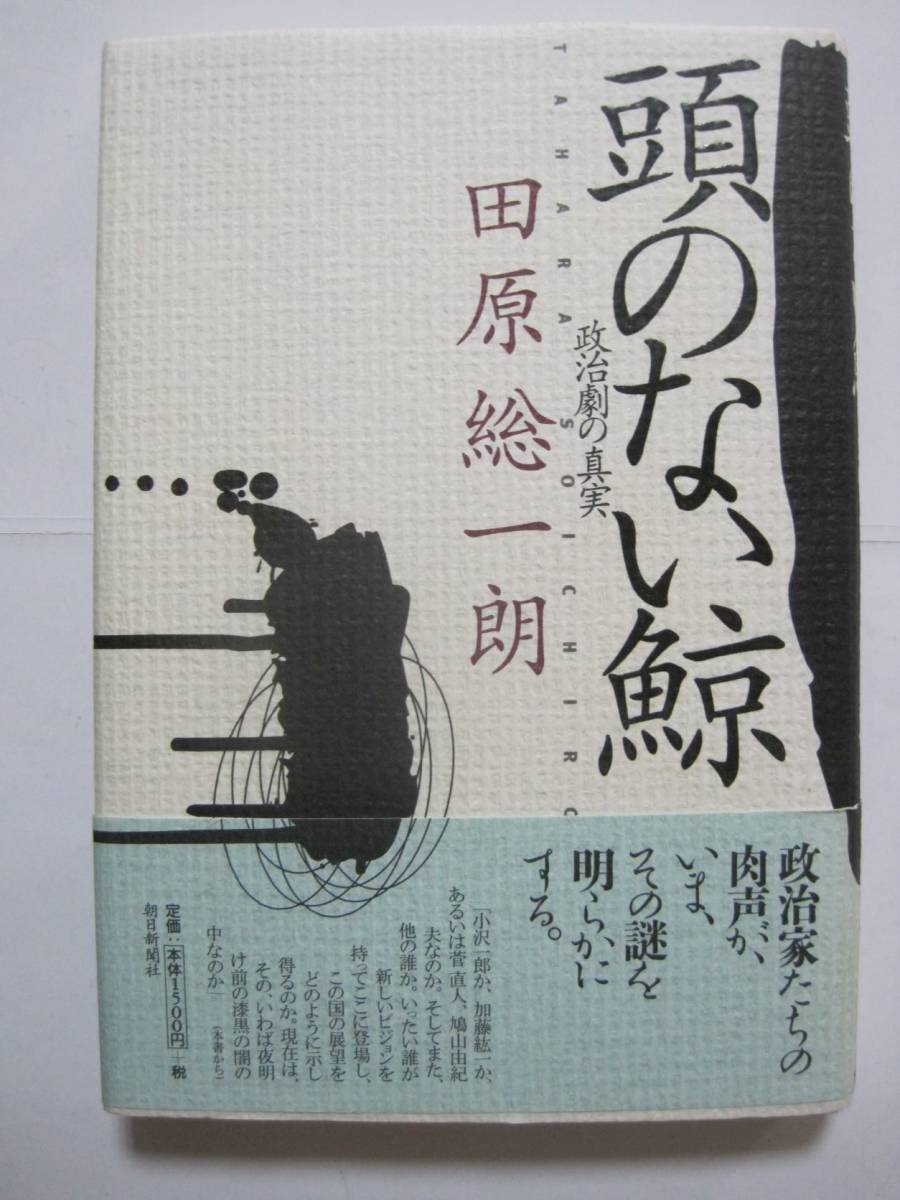 頭のない鯨
政治劇の真実
TAHARA SOICHIRO
田原総一朗
政治家たちの
肉声が、
いま、
その謎を
明らかに
する。
「小沢一郎か、加藤紘一か、
あるいは菅直人、鳩山由紀
夫なのか。そしてまた、
他の誰か。いったい誰が
新しいビジョンを
持ってここに登場し、
この国の展望を
どのように示し
得るのか。現在は、
その、いわば夜明
け前の漆黒の闇の
中なのか」
(本書から)
定価:本体1500円+税
朝日新聞社